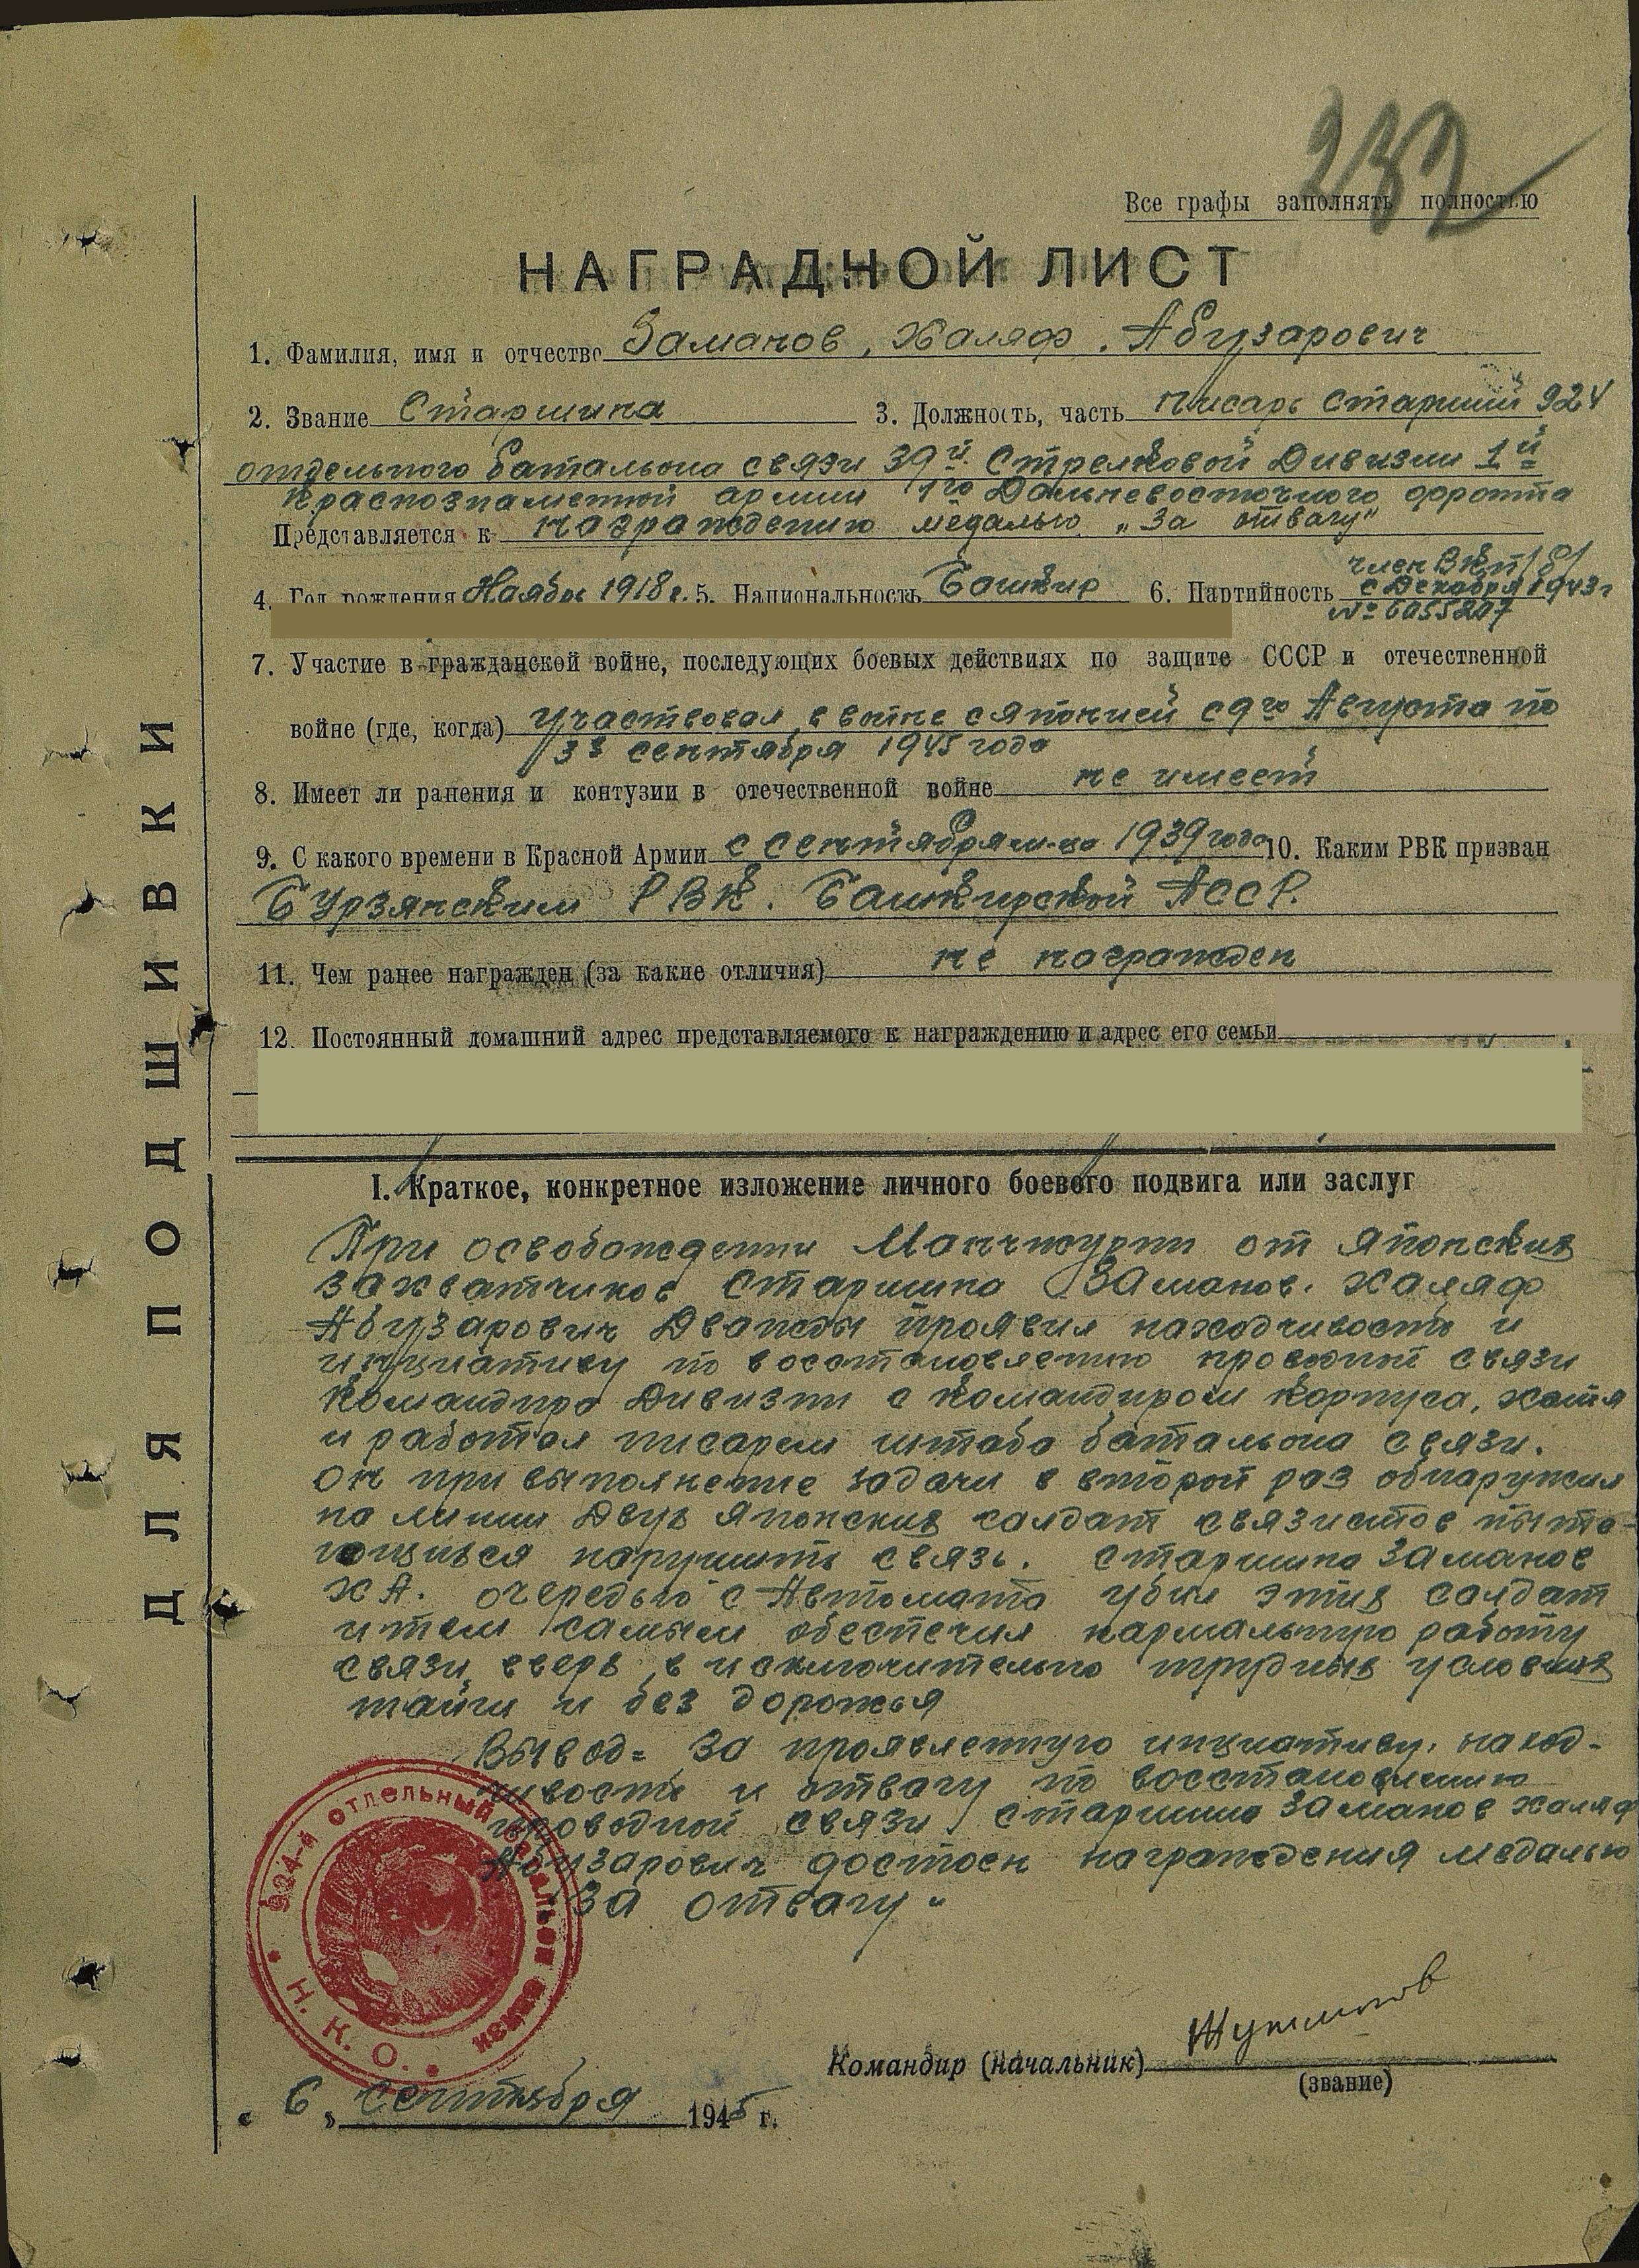 232
Все графы заполнять полностью
НАГРАДНОЙ ЛИСТ
1. Фамилия, имя и отчество Заманов, Халяф. Абузарович
2. Звание Старшина 3. Должность, часть писарь старший 924
отдельного батальона связи 39й Стрелковой Дивизии 1й
Краснознаменной армии 1го Дальневосточного фронта
Представляется к награждению медалью „За отвагу"
член ВКП/б/
4. Год рождения Ноябрь 1918 г. 5. Национальность Башкир 6. Партийность с Декабря 1943г
№ 6055207
7. Участие в гражданской войне, последующих боевых действиях по защите СССР и отечественной
войне (где, когда) участвовал в войне с японией с 9го Августа по
3е сентября 1945 года
8. Имеет ли ранения и контузии в отечественной войне не имеет
9. С какого времени в Красной Армии с сентября м-ца 1939 года 10. Каким РВК призван
Бурзянским РВК. Башкирской АССР.
11. Чем ранее награжден (за какие отличия) не награжден
12. Постоянный домашний адрес представляемого к награждению и адрес его семьи
I. Краткое, конкретное изложение личного боевого подвига или заслуг
При освобождении Манчжурии от японских
захватчиков старшина Заманов. Халяф
Абузарович Дважды проявил находчивость и
инциативу по восстановлению проводной связи
Командира Дивизии с Командиром Корпуса, хотя
и работал писарем штаба батальона связи.
он при выполнение задачи в второй раз обнаружил
на линии Двух японских салдат связистов пыта-
ющихся нарушить связь. Старшина Заманов
Х А. очередью с Автомата убил этих салдат
и тем самым обеспечил нармальную работу
связи вверх, в исключительно трудных условиях
тайги и без дорожья
Вывод = За проявленную инциативу, наход-
чивость и отвагу по восстановлению
проводной связи старшина Заманов Халяф
Абузарович достоен награждения медалью
„За отвагу"
924-й ОТДЕЛЬНЫЙ БАТАЛЬОН СВЯЗИ
Н. К. О.
Командир (начальник)
(звание)
„ 6 „ Сентября 1945 г.
ДЛЯ ПОДШИВКИ